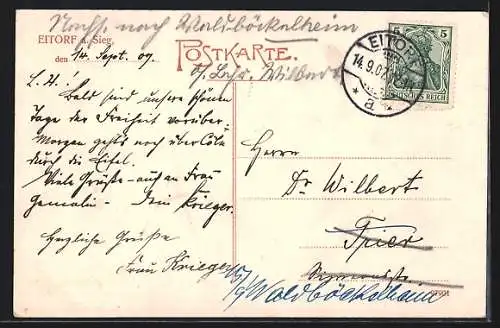 Nachs. nach Waldböckelheim
EITORF a. Sieg,
den 14. Sept. 09.
POSTKARTE.
b/ Lehr. Wilbert
EITORF
14.9.07
* a *
5 5
DEUTSCHES REICH
L. W.!
Bald sind unsere schönen
Tage der Freiheit vorüber.
Morgen gehts noch über Cöln
durch die Eifel.
Viele Grüße - auch an Frau
Gemalin - Dein Krieger.
Herzliche Grüße
Frau Krieger
Herrn
Dr. Wilbert
Trier
Waldböckelheim